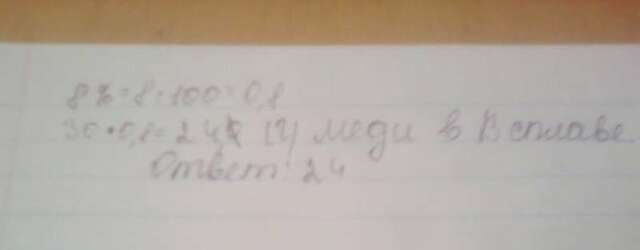 8% = 8 : 100 = 0,8
30 • 0,8 = 24 (г) меди в В сплаве
Ответ: 24